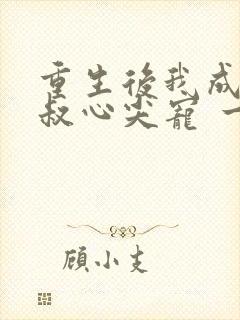 重生後我成
叔心尖寵 一
顧小支